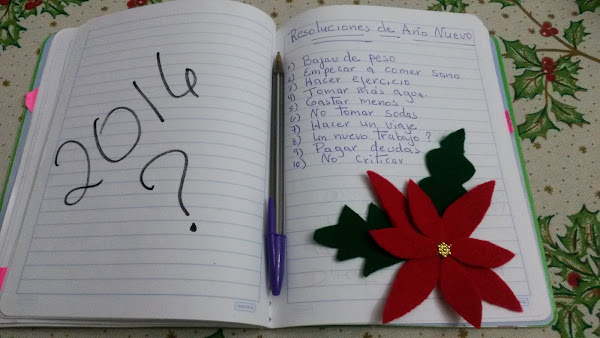 2014
?
Resoluciones de Año Nuevo
1) Bajar de peso
2) Empezar a comer sano
3) Hacer ejercicio
4) Tomar más agua
5) Gastar menos
6) No tomar sodas
7) Hacer un viaje
8) Un nuevo trabajo?
9) Pagar deudas
10) No criticar